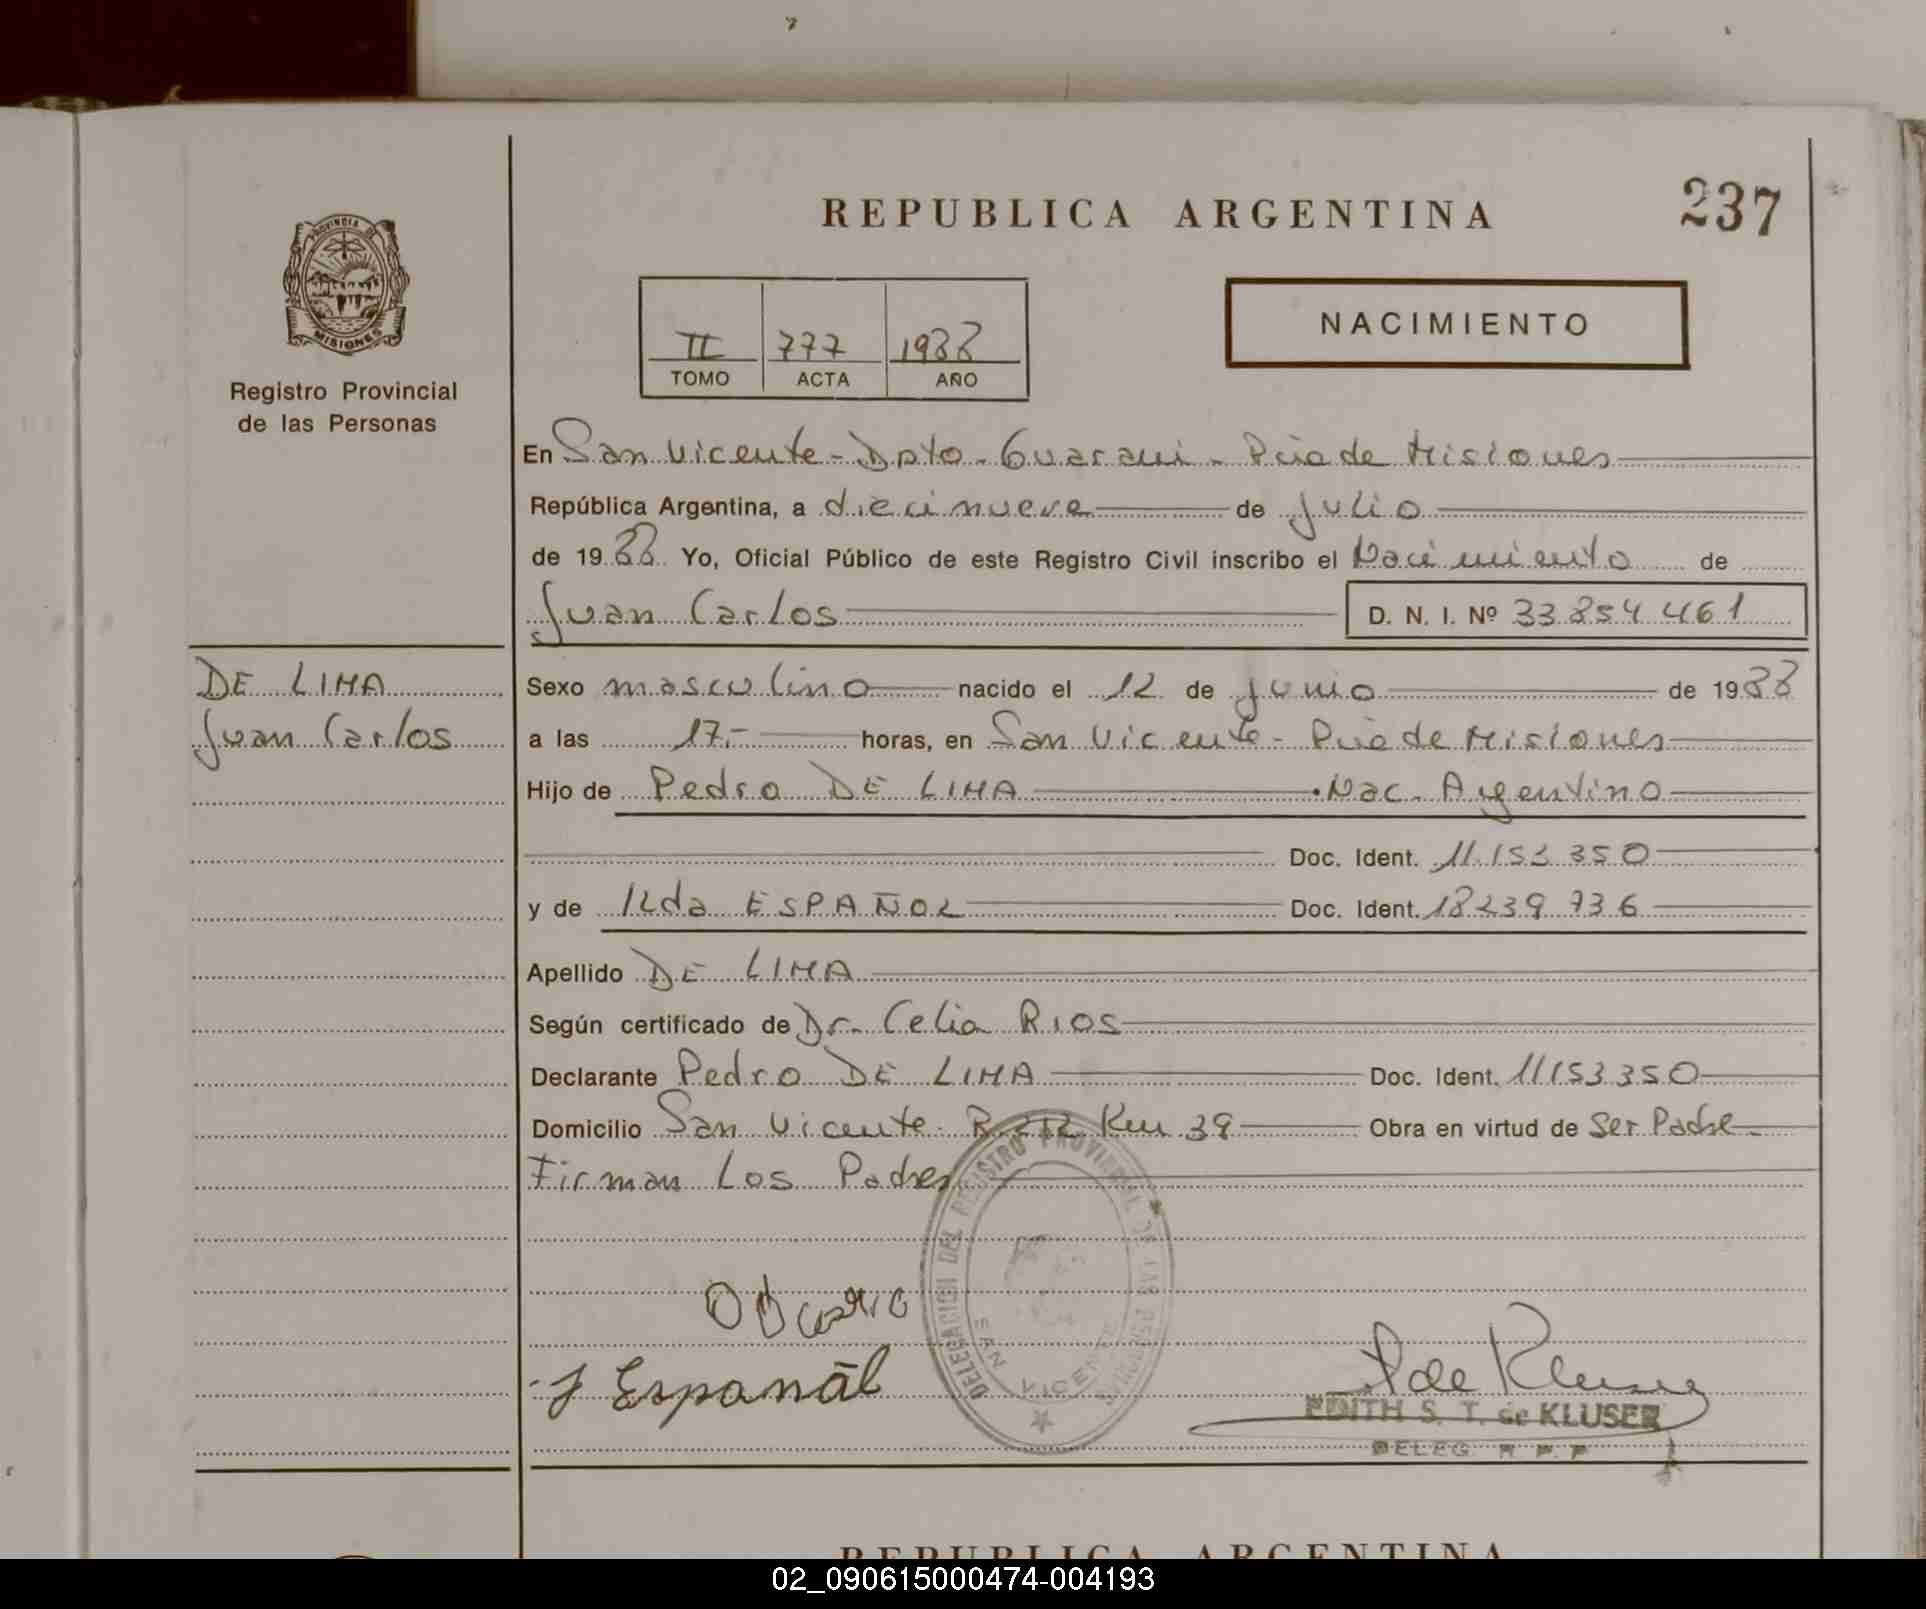 REPUBLICA ARGENTINA
237
PROVINCIA DE
MISIONES
Registro Provincial
de las Personas
II 777 1988
TOMO ACTA AÑO
NACIMIENTO
En San Vicente - Dpto - Guarani - Pcia de Misiones
República Argentina, a diecinueve de Julio
de 1988 Yo, Oficial Público de este Registro Civil inscribo el Nacimiento de
Juan Carlos D. N. I. Nº 33 854 461
DE LIMA
Juan Carlos
Sexo masculino nacido el 12 de junio de 1988
a las 17.- horas, en San Vicente - Pcia de Misiones
Hijo de Pedro DE LIMA . Nac. Argentino
Doc. Ident. 11.153 350
y de Ilda ESPAÑOL Doc. Ident. 18239 736
Apellido DE LIMA
Según certificado de Dr. Celia RIOS
Declarante Pedro DE LIMA Doc. Ident. 11153350
Domicilio San Vicente Km 39 Obra en virtud de Ser Padre
Firman Los Padres
DELEGACION DEL REGISTRO PROVINCIAL DE LAS PERSONAS
SAN VICENTE
Espanāl
de Kluser
EDITH S. T. de KLUSER
DELEG. R. P. P.
REPUBLICA ARGENTINA
02_090615000474-004193